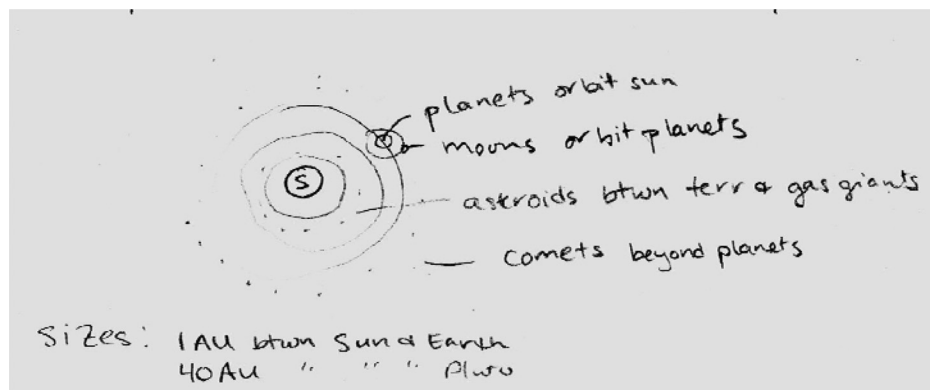 planets orbit sun
moons orbit planets
S
asteroids btwn terr & gas giants
comets beyond planets
Sizes: 1 AU btwn Sun & Earth
40 AU " " " Pluto